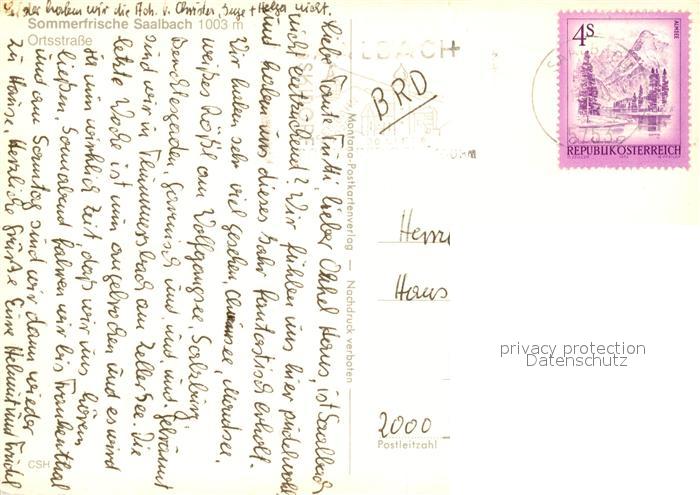 Leider haben wir die Adr. v. Christa, Inge + Helga nicht.
Sommerfrische Saalbach 1003 m
Ortsstraße
Liebe Tante Trudi, lieber Onkel Hans, ist Saalbach
nicht entzückend? Wir fühlen uns hier pudelwohl
und haben uns dieses Jahr fantastisch erholt.
Wir haben sehr viel gesehen, Chiemsee, Mondsee,
weißes Rößl am Wolfgangsee, Salzburg,
Berchtesgaden, Garmisch und, und, und. Geträumt
sind wir in Thumersbach am Zeller See. Die
letzte Woche ist nun angebrochen und es wird
nun wirklich Zeit, daß wir uns hören
ließen. Sonnabend fahren wir bis Frankenthal
und am Sonntag sind wir dann wieder
zu Hause. Herzliche Grüße Eure Helmut und Friedel
CSH
Montana-Postkartenverlag — Nachdruck verboten
SAALBACH
BRD
4S
ALMSEE
REPUBLIK ÖSTERREICH
5753
Herrn
Hans
2000
Postleitzahl
privacy protection
Datenschutz